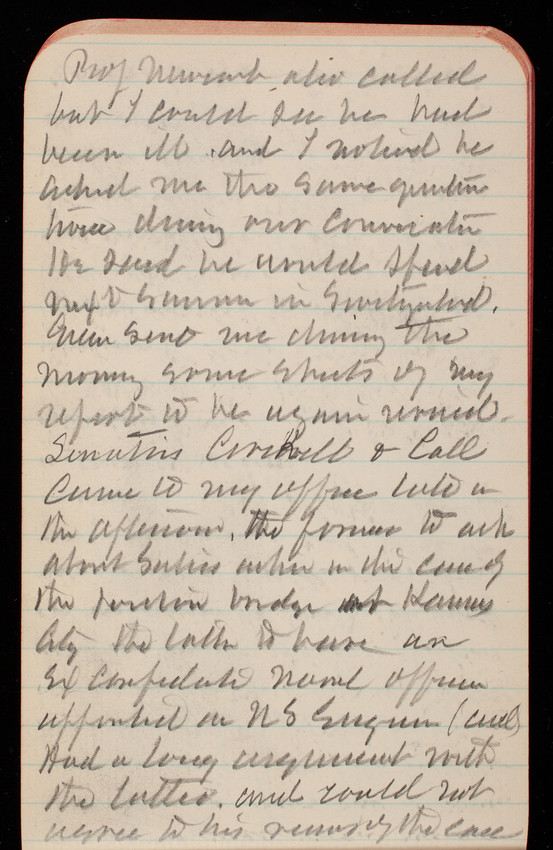 Prof Newcomb also called
but I could see he had
been ill and I noticed he
asked me the same question
twice during our conversation
He said he would spend
next Summer in Switzerland.
Green sent me during the
morning some sheets of my
report to be again revised.
Senators Cockrell & Call
came to my office late in
the afternoon, the former to ask
about action in the case of
the bridge at Kansas
City the latter to have an
Ex Confederate naval officer
appointed an US Engineer (and)
Had a long argument with
the latter. and could not
agree to his views of the case